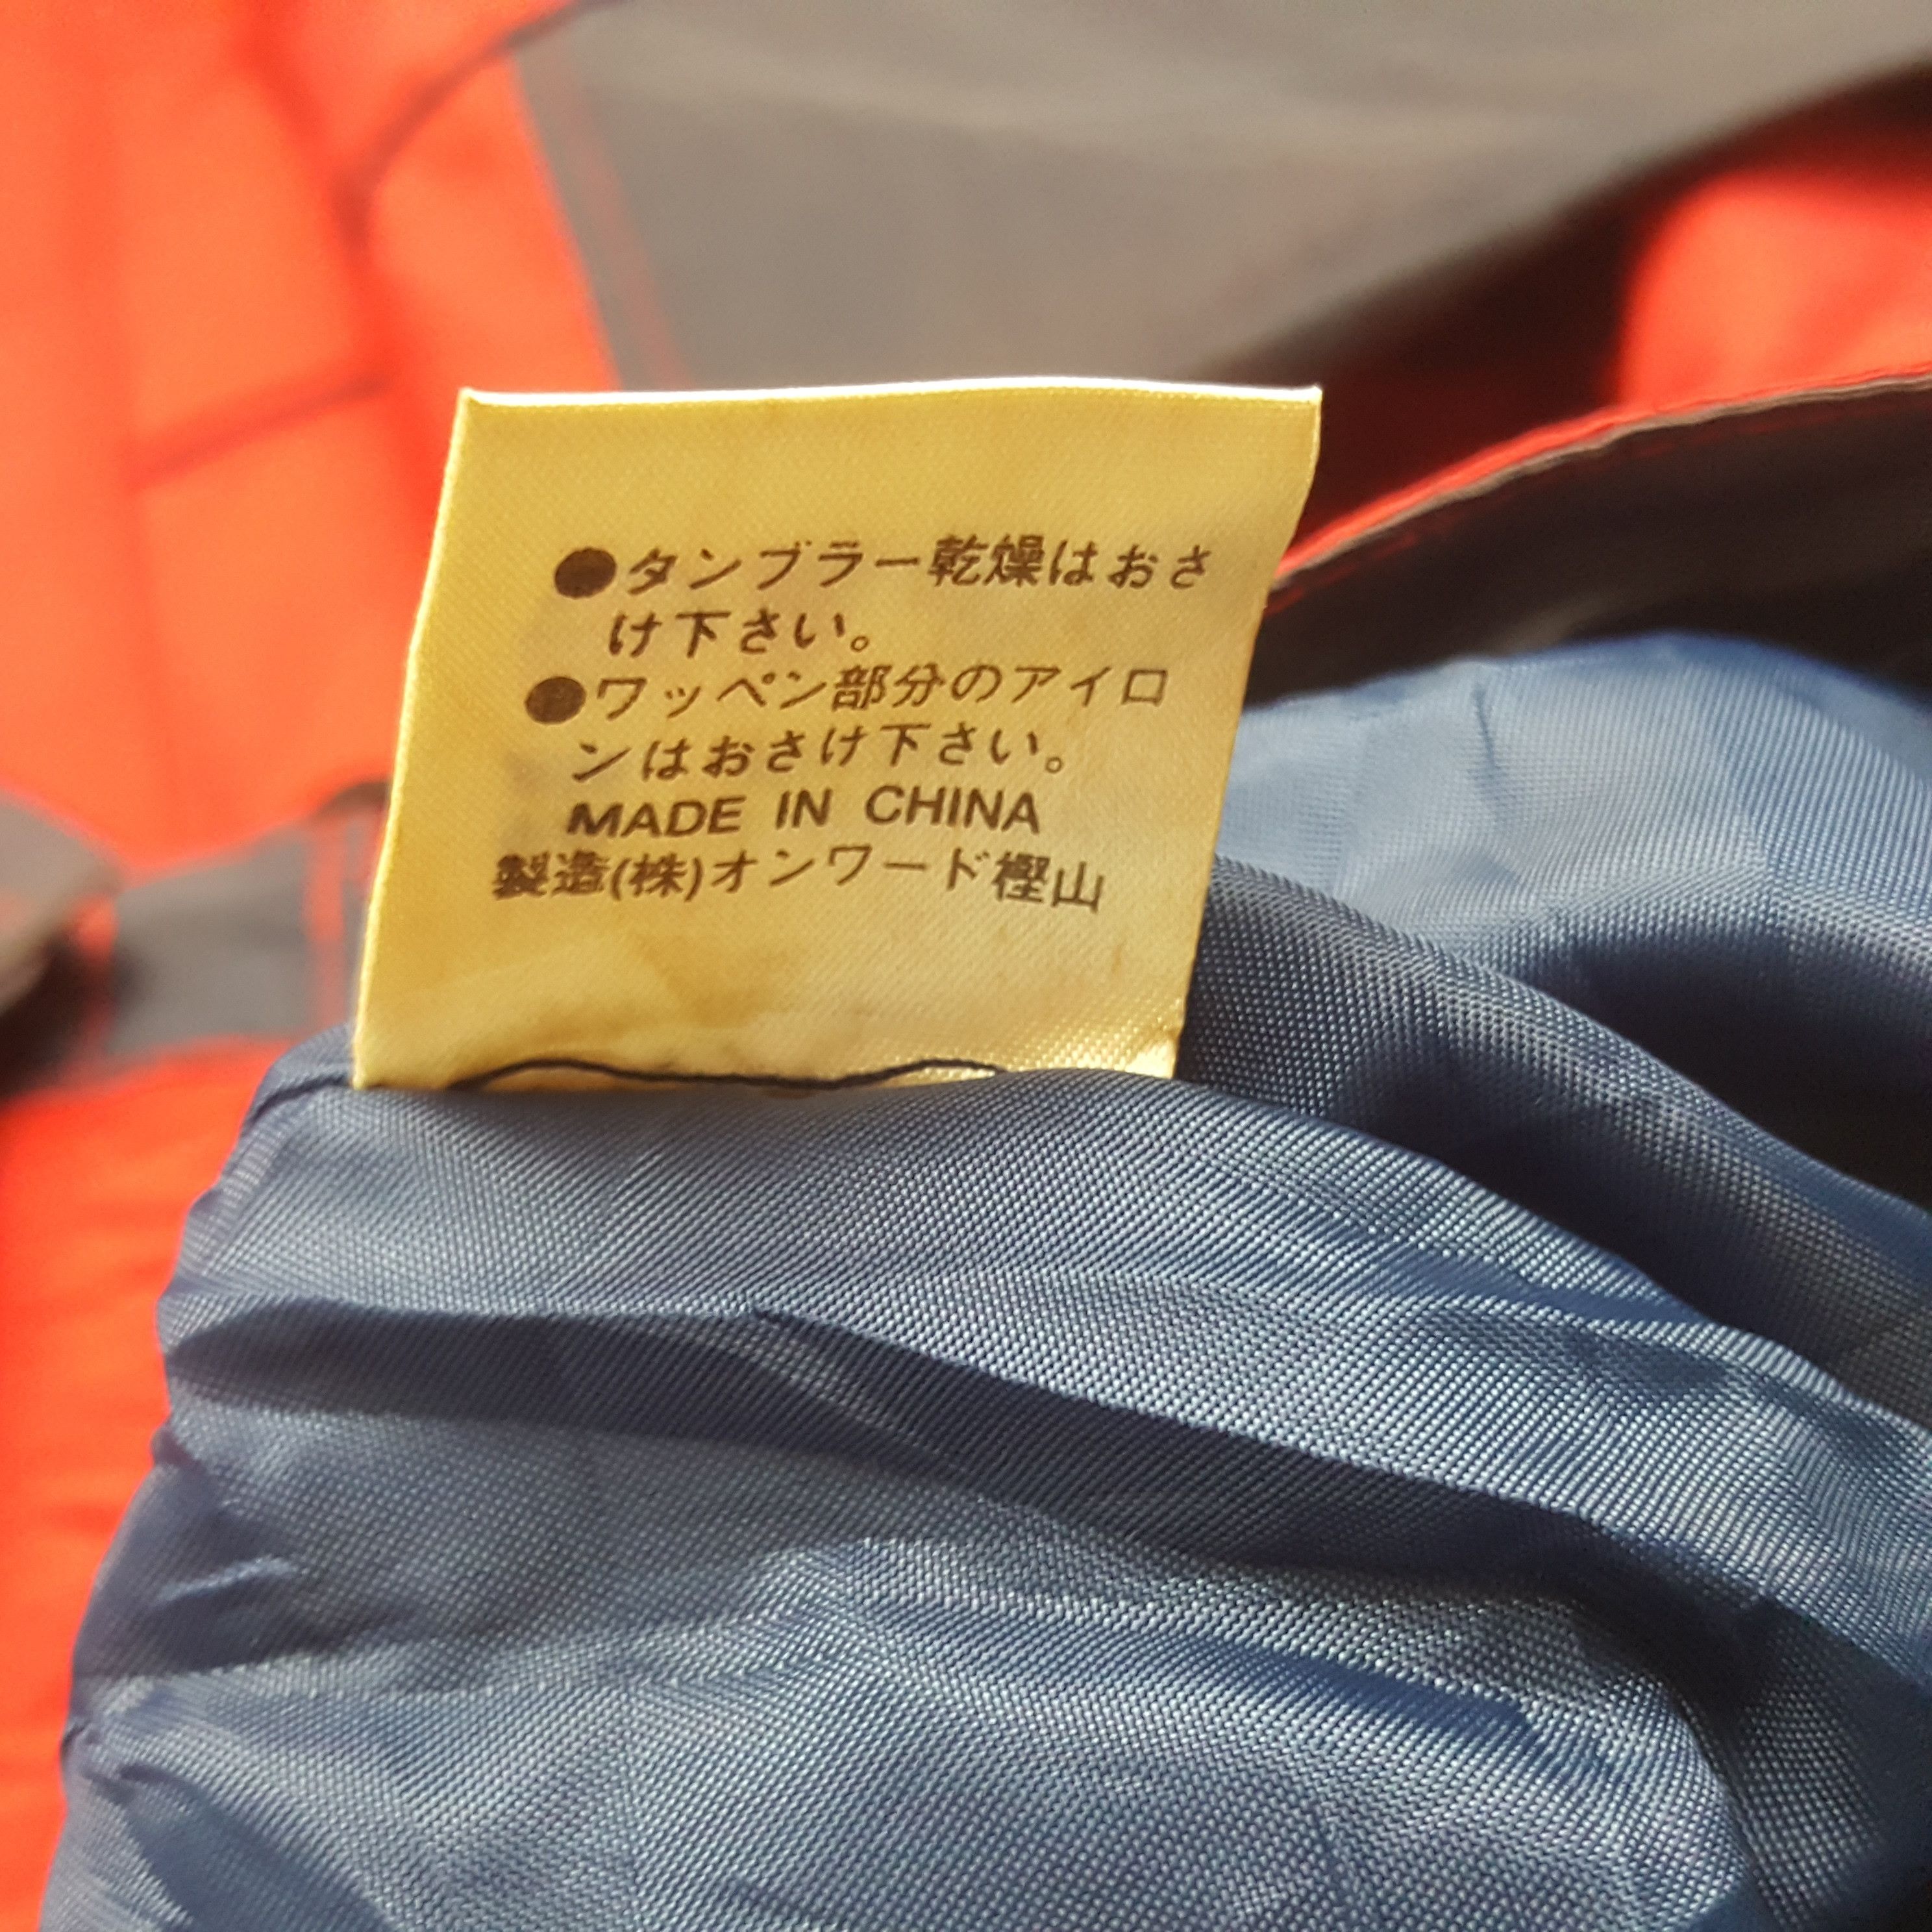 ●タンブラー乾燥はおさ
け下さい。
●ワッペン部分のアイロ
ンはおさけ下さい。
MADE IN CHINA
製造(株)オンワード樫山